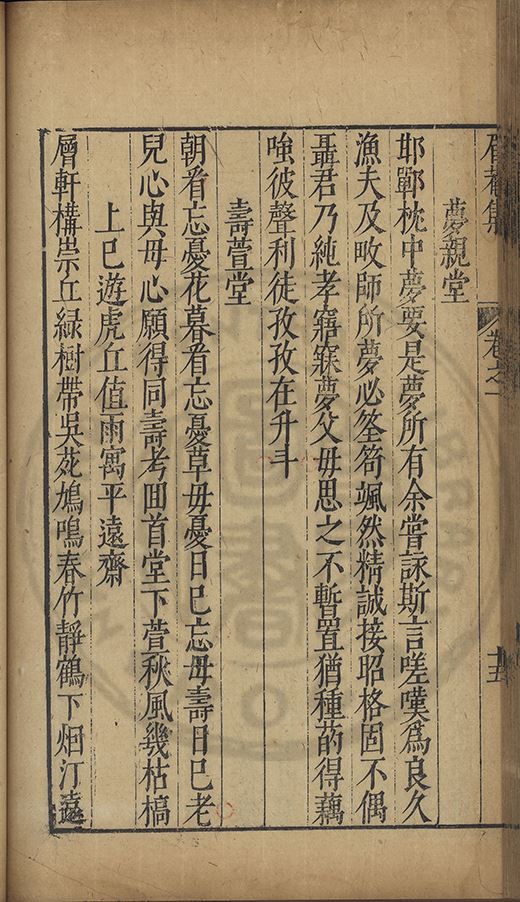 卷之一
夢親堂
邯鄲枕中夢要是夢所有余嘗詠斯言嗟嘆為良久
漁夫及畋師所夢必筌笱颯然精誠接昭格固不偶
聶君乃純孝寤寐夢父母思之不暫置猶種菂得藕
嗤彼聲利徒孜孜在升斗
壽萱堂
朝看忘憂花暮看忘憂草母憂日已忘母壽日已老
兒心與母心願得同壽考囬首堂下萱秋風幾枯槁
上巳遊虎丘值雨寓平遠齋
層軒構崇丘綠樹帶吳苑鳩鳴春竹靜鶴下烟汀遠